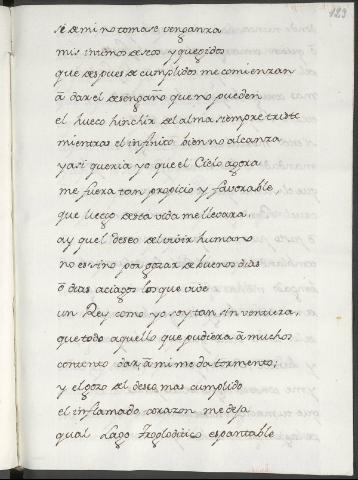 123
si de mi no tomase venganza
mis mismos deseos y que gozados
que despues de cumplidos me comienzan
â dar el desengaño que no pueden
el hueco hinchir del alma siempre triste
mientras el infinito bien no alcanza
y asi queria yo que el Cielo agora
me fuera tan propicio y favorable,
que luego desta vida me llevara
ay quel deseo del vivir humano
no es sino por gozar de buenos dias
ô dias aciagos los que vive
un Rey como yo soy tan sin ventura,
que todo aquello que pudiera â muchos
contento dar, â mi me da tormento;
y el gozo del deseo mas cumplido
el inflamado corazon me deja
qual Lago Troglodítico espantable